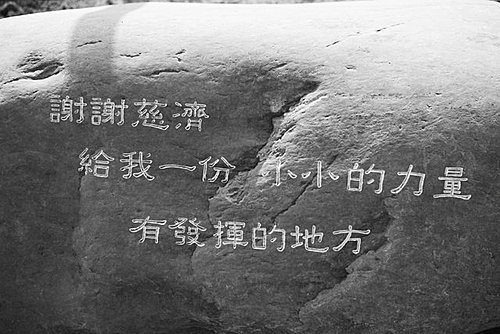 謝謝慈濟
給我一份 小小的力量
有發揮的地方